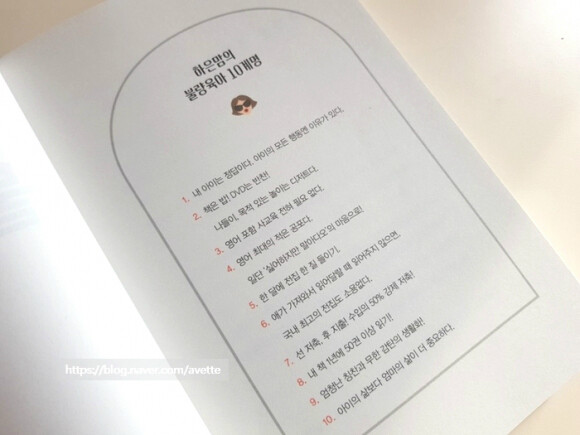 하은맘의
불량육아 10계명
1. 내 아이는 정답이다. 아이의 모든 행동엔 이유가 있다.
2. 책은 밥! DVD는 반찬!
나들이, 목적 있는 놀이는 디저트다.
3. 영어 포함 사교육 전혀 필요 없다.
4. 영어 최대의 적은 공포다.
일단 '싫어하지만 말아다오'의 마음으로!
5. 한 달에 전집 한 질 들이기.
6. 애가 가져와서 읽어달랠 때 읽어주지 않으면,
국내 최고의 전집도 소용없다.
7. 선 저축, 후 지출! 수입의 50% 강제 저축!
8. 내 책 1년에 50권 이상 읽기!
9. 엄청난 칭찬과 유한 감탄의 생활화!
10. 아이의 삶보다 엄마의 삶이 더 중요하다.
https://blog.naver.com/avette